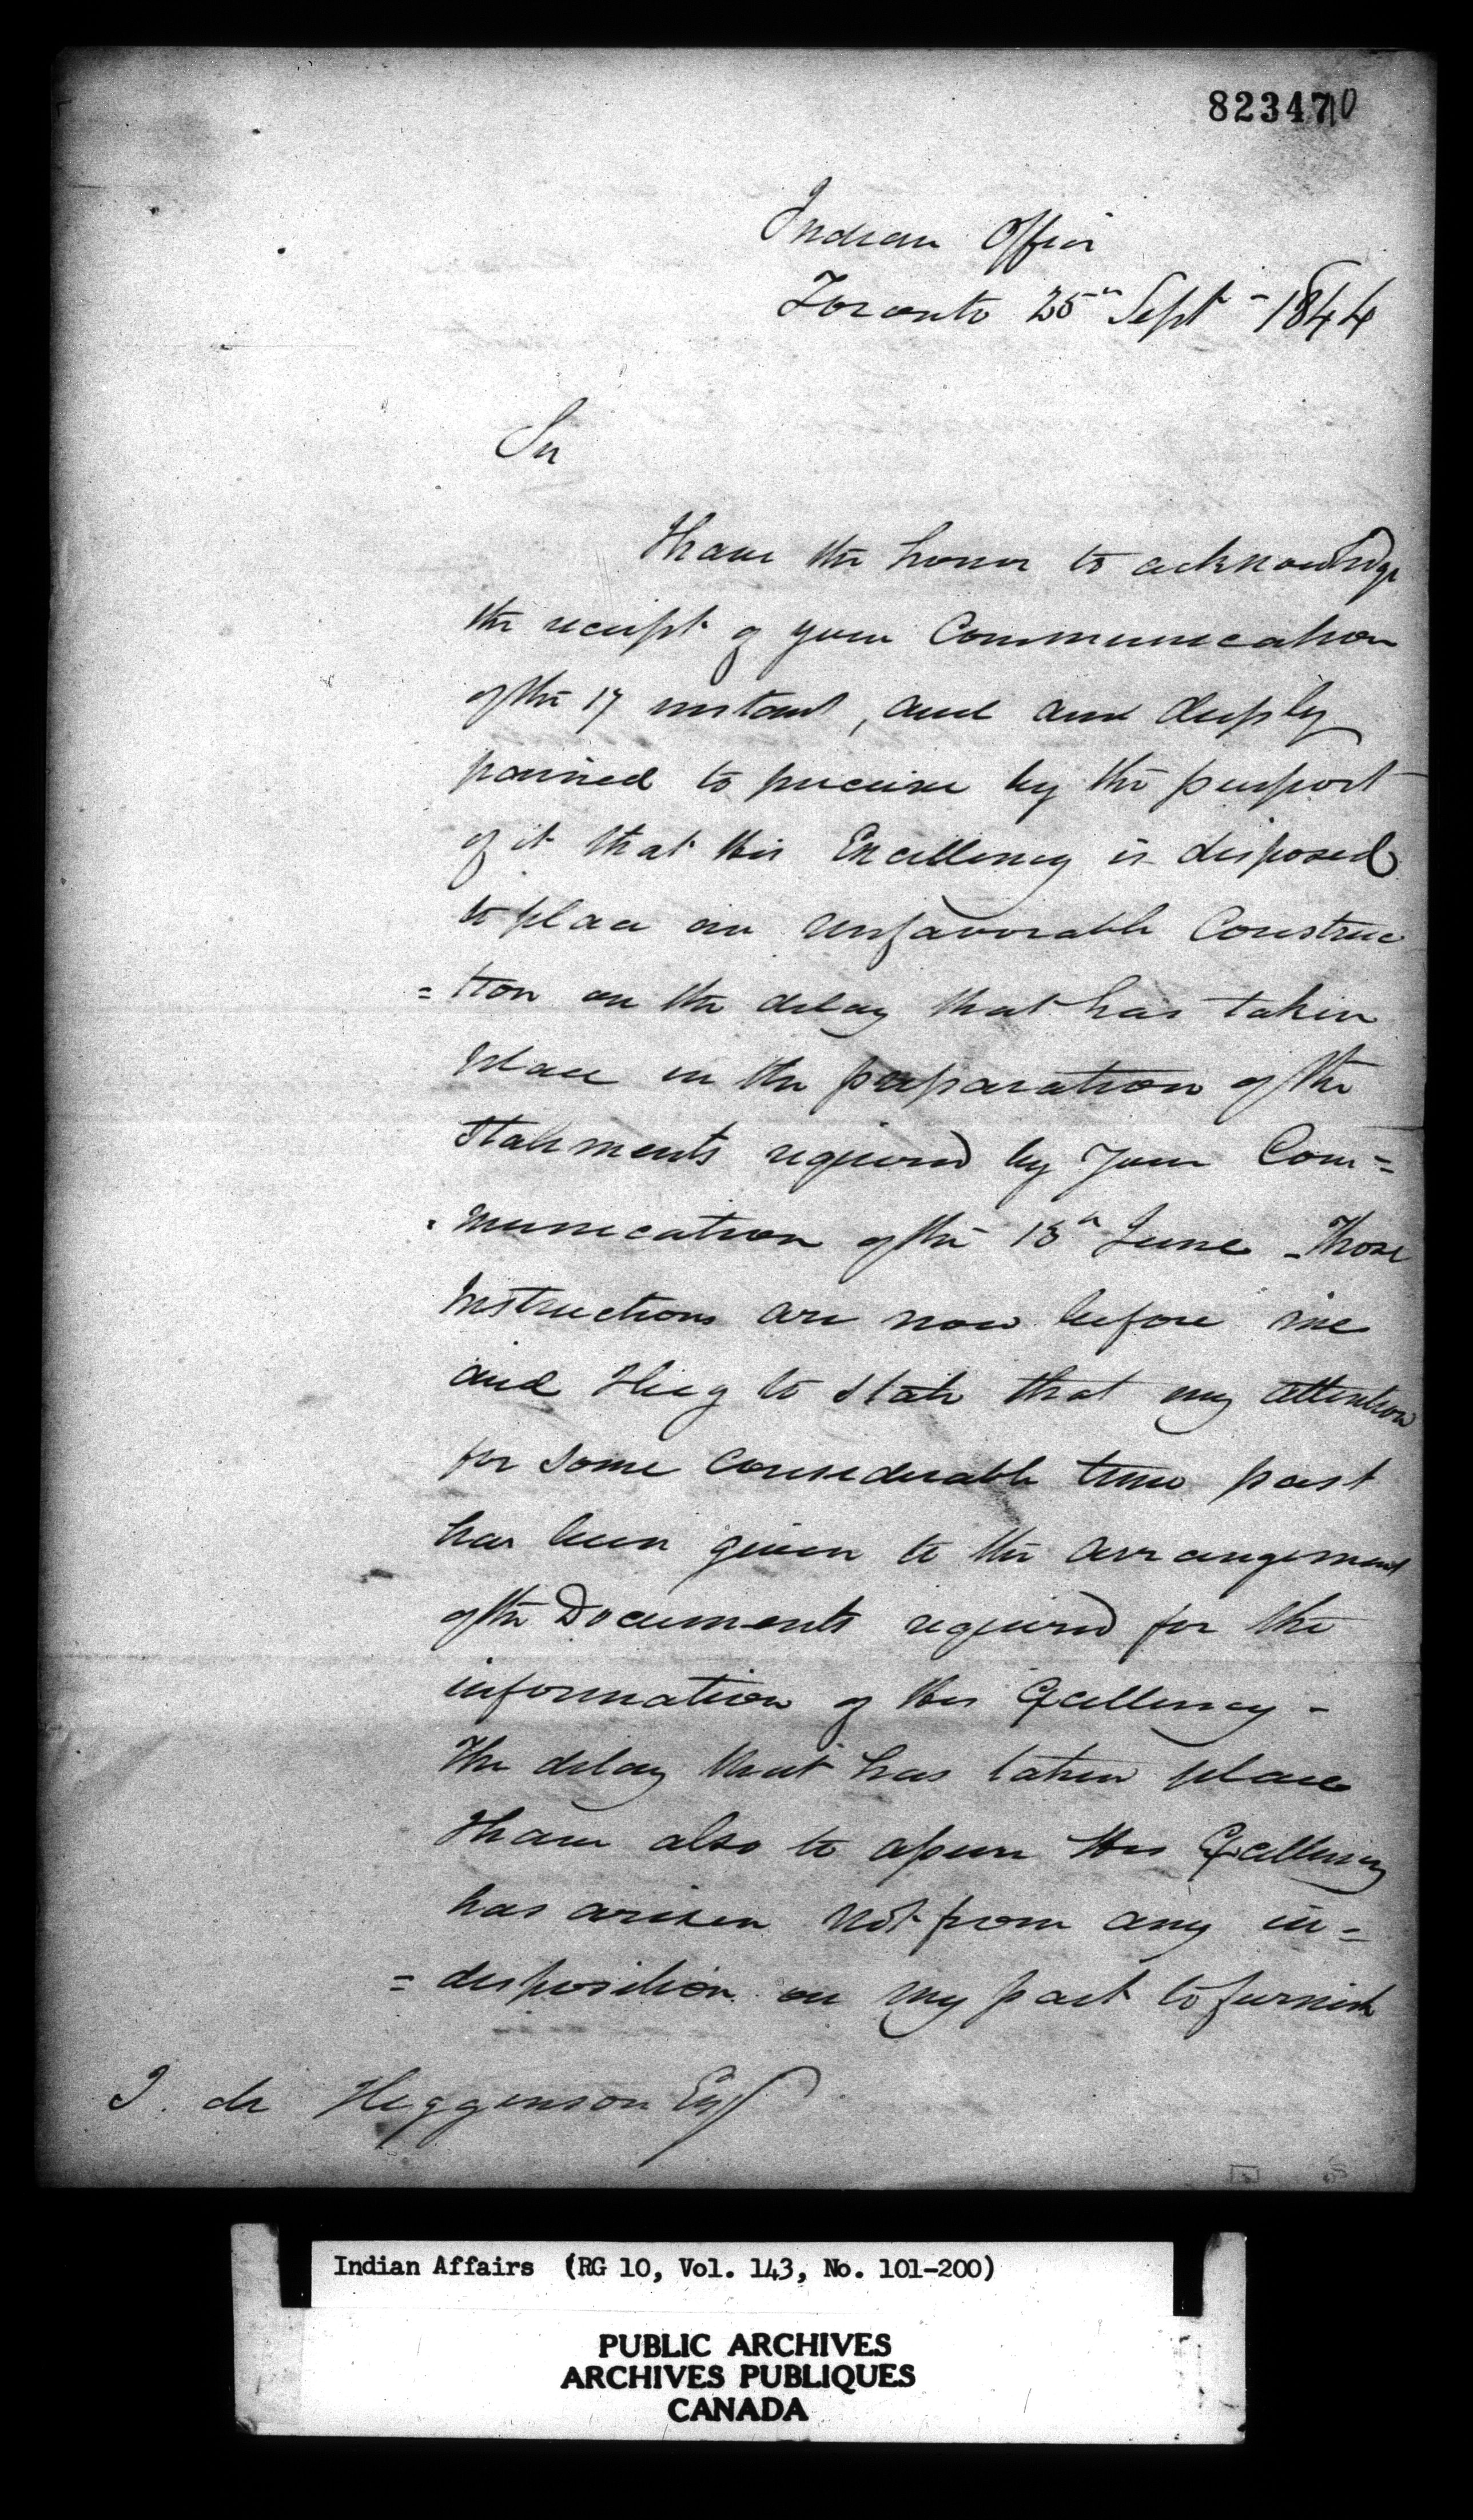 82347 10
Indian Office
Toronto 25th Sept - 1844
Sir
I have the honor to acknowledge
the receipt of your Communication
of the 17 instant, and am deeply
pained to perceive by the purport
of it that His Excellency is disposed
to place an unfavorable Construc
= tion on the delay that has taken
place in the preparation of the
Statements required by your Com=
munication of the 13th June - Those
Instructions are now before me
and I beg to State that my attention
for some considerable time past
has been given to the arrangement
of the Documents required for the
information of His Excellency -
The delay that has taken place
I have also to assure His Excellency
has arisen not from any in=
= disposition on my part to furnish
J. de Higginson Esq
Indian Affairs (RG 10, Vol. 143, No. 101-200)
PUBLIC ARCHIVES
ARCHIVES PUBLIQUES
CANADA